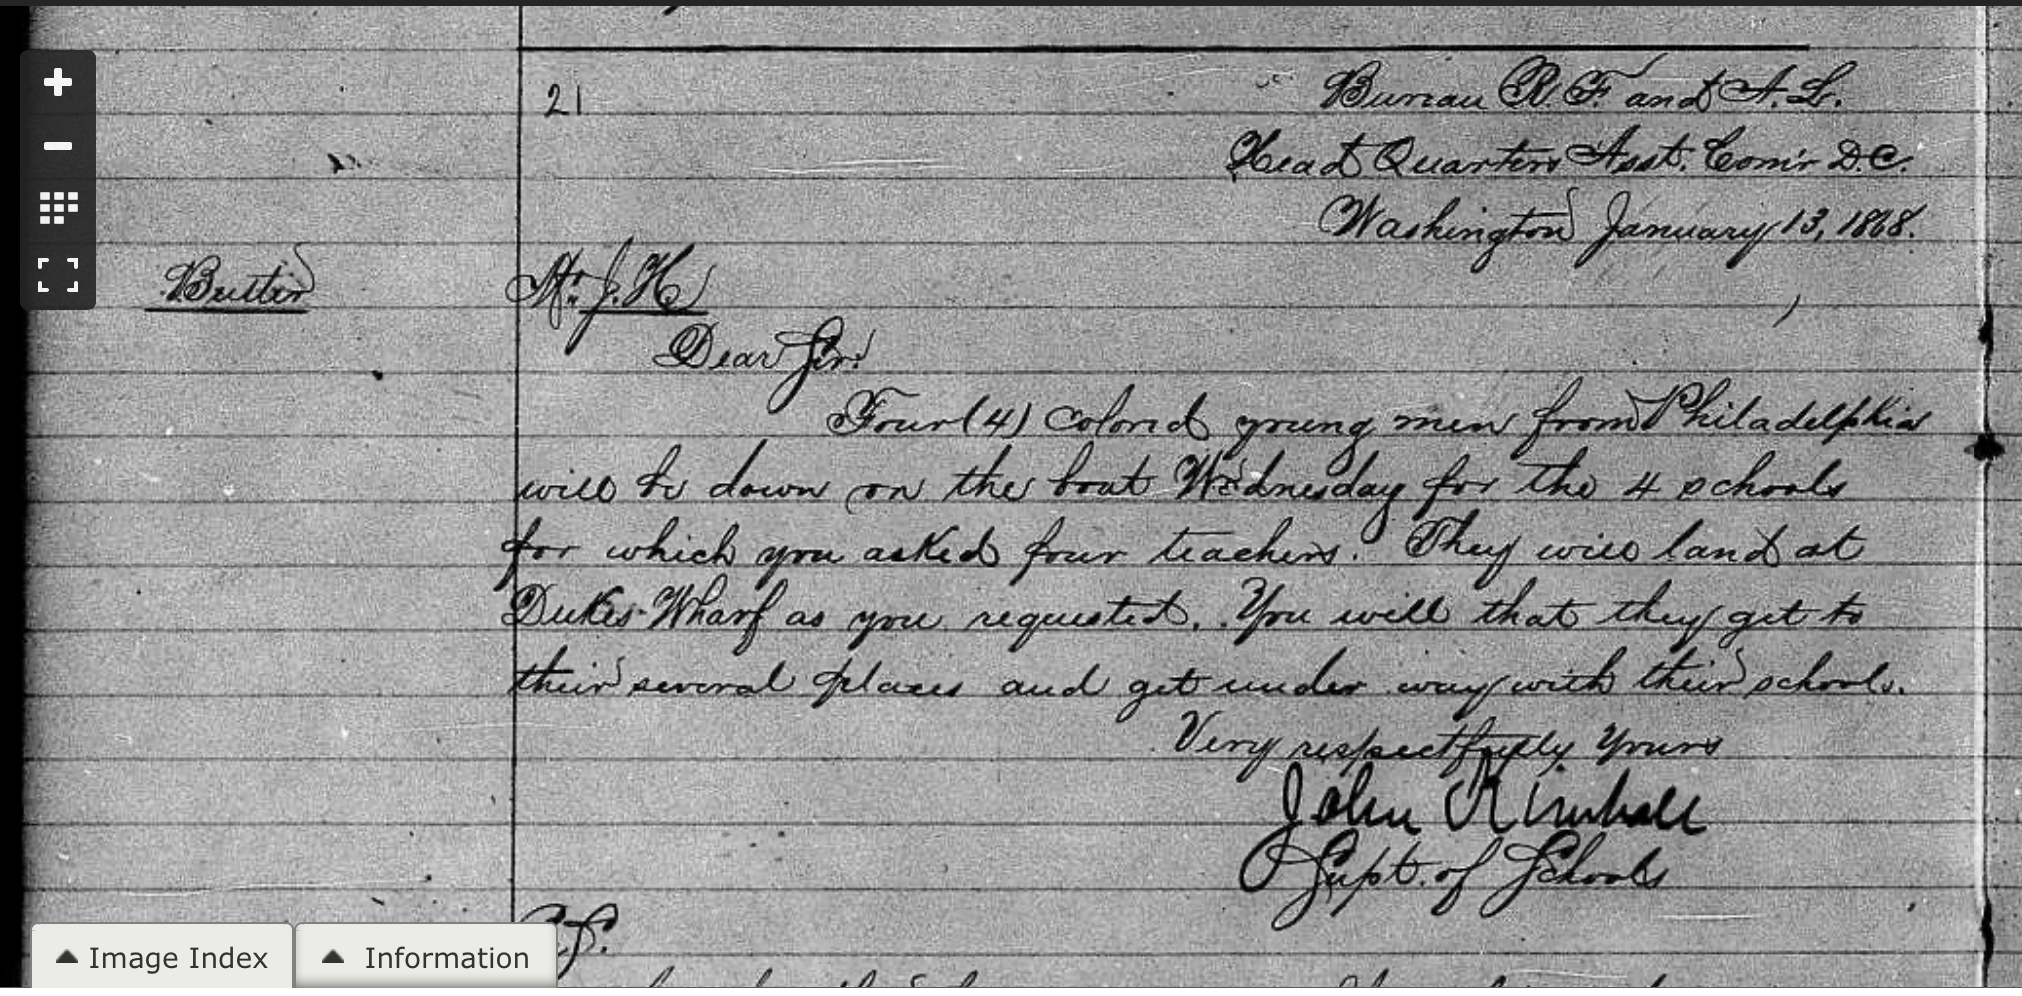 21
Bureau R. F. and A. L.
Head Quarters Asst. Com'r D.C.
Washington January 13, 1868.
Butler Mr. J. H
Dear Sir:
Four (4) colored young men from Philadelphia
will be down on the boat Wednesday for the 4 schools
for which you asked four teachers. They will land at
Dukes Wharf as you requested. You will that they get to
their several places and get under way with their schools.
Very respectfully Yours
John Kimball
Supt. of Schools
Image Index
Information